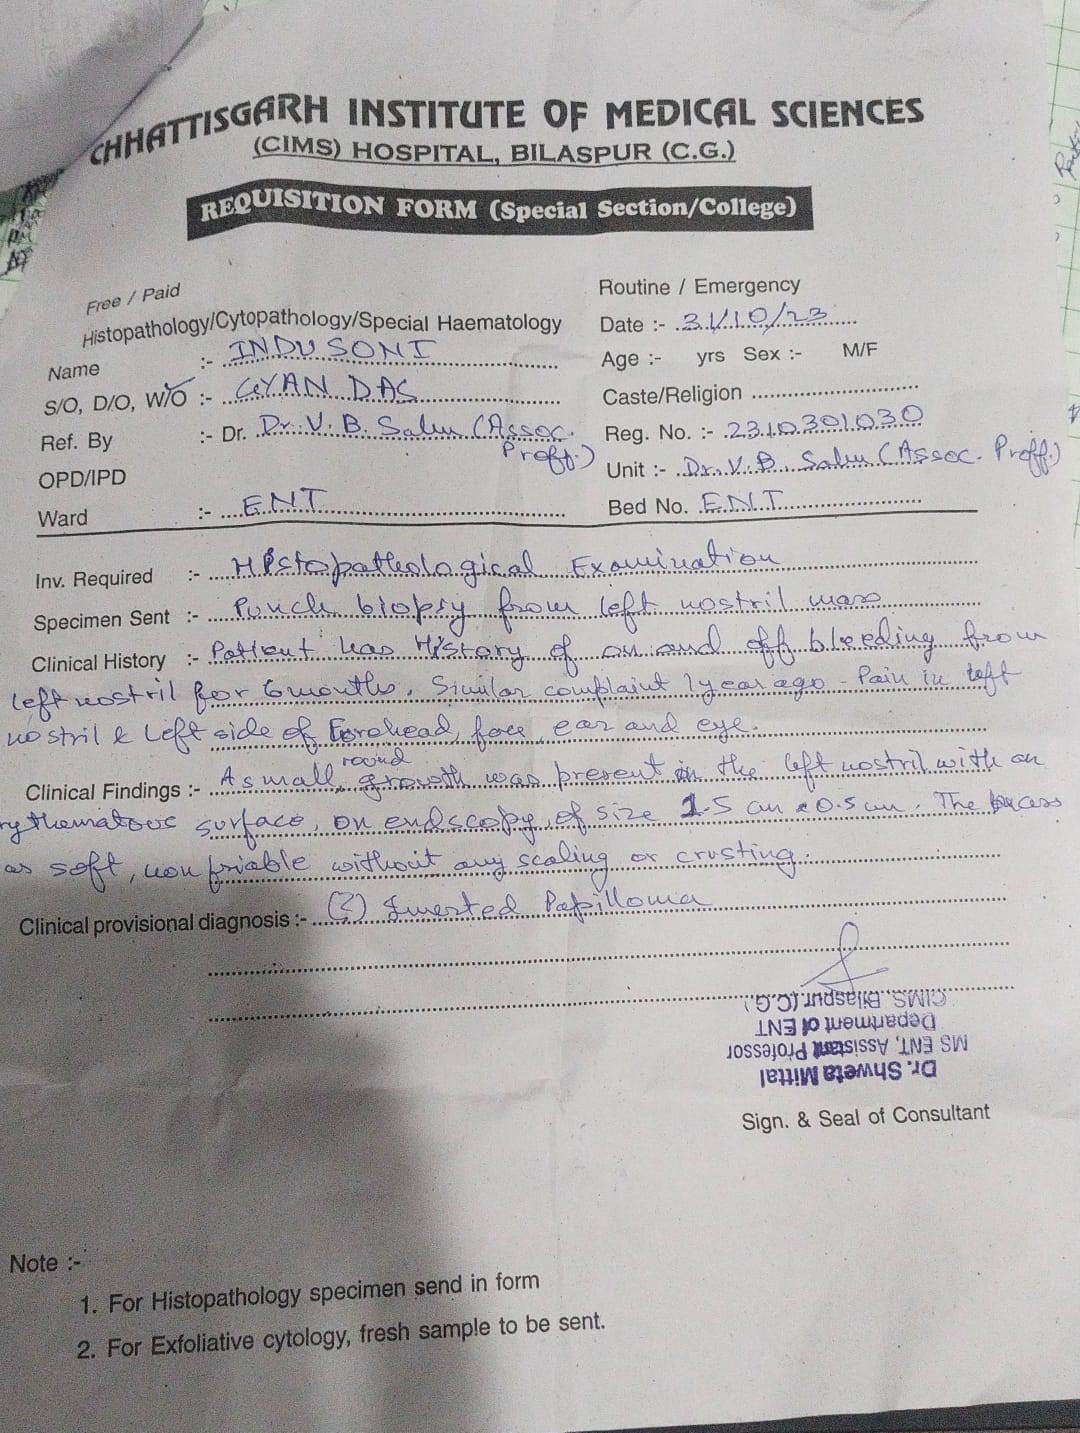 CHHATTISGARH INSTITUTE OF MEDICAL SCIENCES
(CIMS) HOSPITAL, BILASPUR (C.G.)
REQUISITION FORM (Special Section/College)
Free / Paid
Routine / Emergency
Histopathology/Cytopathology/Special Haematology
Date :- 31/10/23
Name :- INDU SONI
Age :- yrs Sex :- M/F
S/O, D/O, W/O :- GYAN DAS
Caste/Religion
Ref. By :- Dr. Dr. V. B. (Assoc. Proff.)
Reg. No. :- 2310301030
OPD/IPD
Unit :- Dr. V. B (Assoc. Proff.)
Ward :- ENT
Bed No. ENT
Inv. Required :- Histopathological Examination
Specimen Sent :- Punch biopsy from left nostril mass
Clinical History :- Patient has History of on and off bleeding from
left nostril for 6 months. Similar complaint 1 year ago - Pain in left
nostril & left side of Forehead, face, ear and eye.
Clinical Findings :- A small round growth was present in the left nostril with an
rythematous surface, on endscopy, of size 1.5 cm x 0.5 cm. The
as soft, non friable without any scaling or crusting.
Clinical provisional diagnosis :- (?) Inverted Papilloma
Dr. Shweta Mittal
MS ENT, Assistant Professor
Department of ENT
CIMS, Bilaspur (C.G.)
Sign. & Seal of Consultant
Note :-
1. For Histopathology specimen send in form
2. For Exfoliative cytology, fresh sample to be sent.